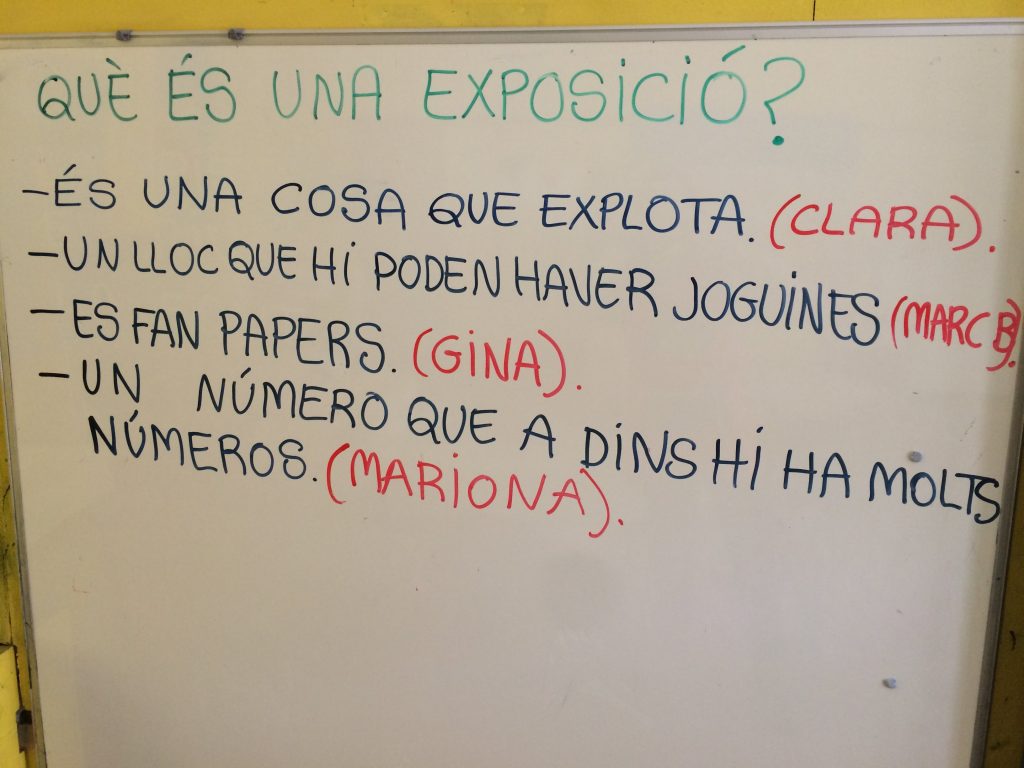 QUÈ ÉS UNA EXPOSICIÓ?
-ÉS UNA COSA QUE EXPLOTA. (CLARA).
-UN LLOC QUE HI PODEN HAVER JOGUINES (MARC B).
-ES FAN PAPERS. (GINA).
-UN NÚMERO QUE A DINS HI HA MOLTS
NÚMEROS. (MARIONA).